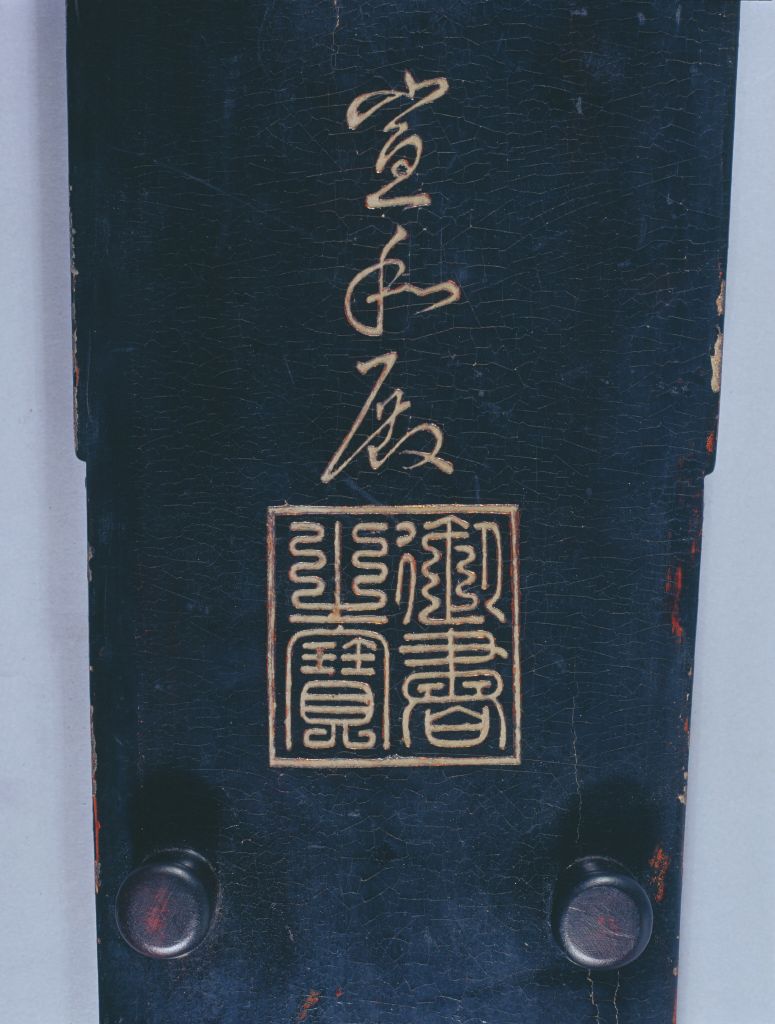 宣和殿
御書
之寶